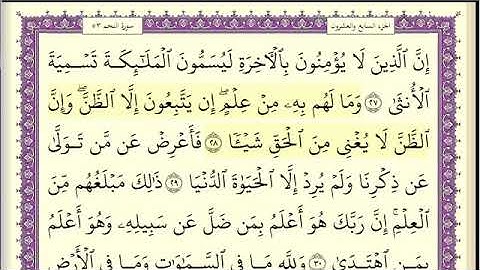 الجزء السابع والعشرون
سورة النجم ٥٣
إِنَّ ٱلَّذِينَ لَا يُؤْمِنُونَ بِٱلْـَٔاخِرَةِ لَيُسَمُّونَ ٱلْمَلَـٰٓئِكَةَ تَسْمِيَةَ
ٱلْأُنثَىٰ ﴿٢٧﴾ وَمَا لَهُم بِهِۦ مِنْ عِلْمٍ ۖ إِن يَتَّبِعُونَ إِلَّا ٱلظَّنَّ ۖ وَإِنَّ
ٱلظَّنَّ لَا يُغْنِى مِنَ ٱلْحَقِّ شَيْـًٔا ﴿٢٨﴾ فَأَعْرِضْ عَن مَّن تَوَلَّىٰ
عَن ذِكْرِنَا وَلَمْ يُرِدْ إِلَّا ٱلْحَيَوٰةَ ٱلدُّنْيَا ﴿٢٩﴾ ذَٰلِكَ مَبْلَغُهُم مِّنَ
ٱلْعِلْمِ ۚ إِنَّ رَبَّكَ هُوَ أَعْلَمُ بِمَن ضَلَّ عَن سَبِيلِهِۦ وَهُوَ أَعْلَمُ
بِمَنِ ٱهْتَدَىٰ ﴿٣٠﴾ وَلِلَّهِ مَا فِى ٱلسَّمَـٰوَٰتِ وَمَا فِى ٱلْأَرْضِ